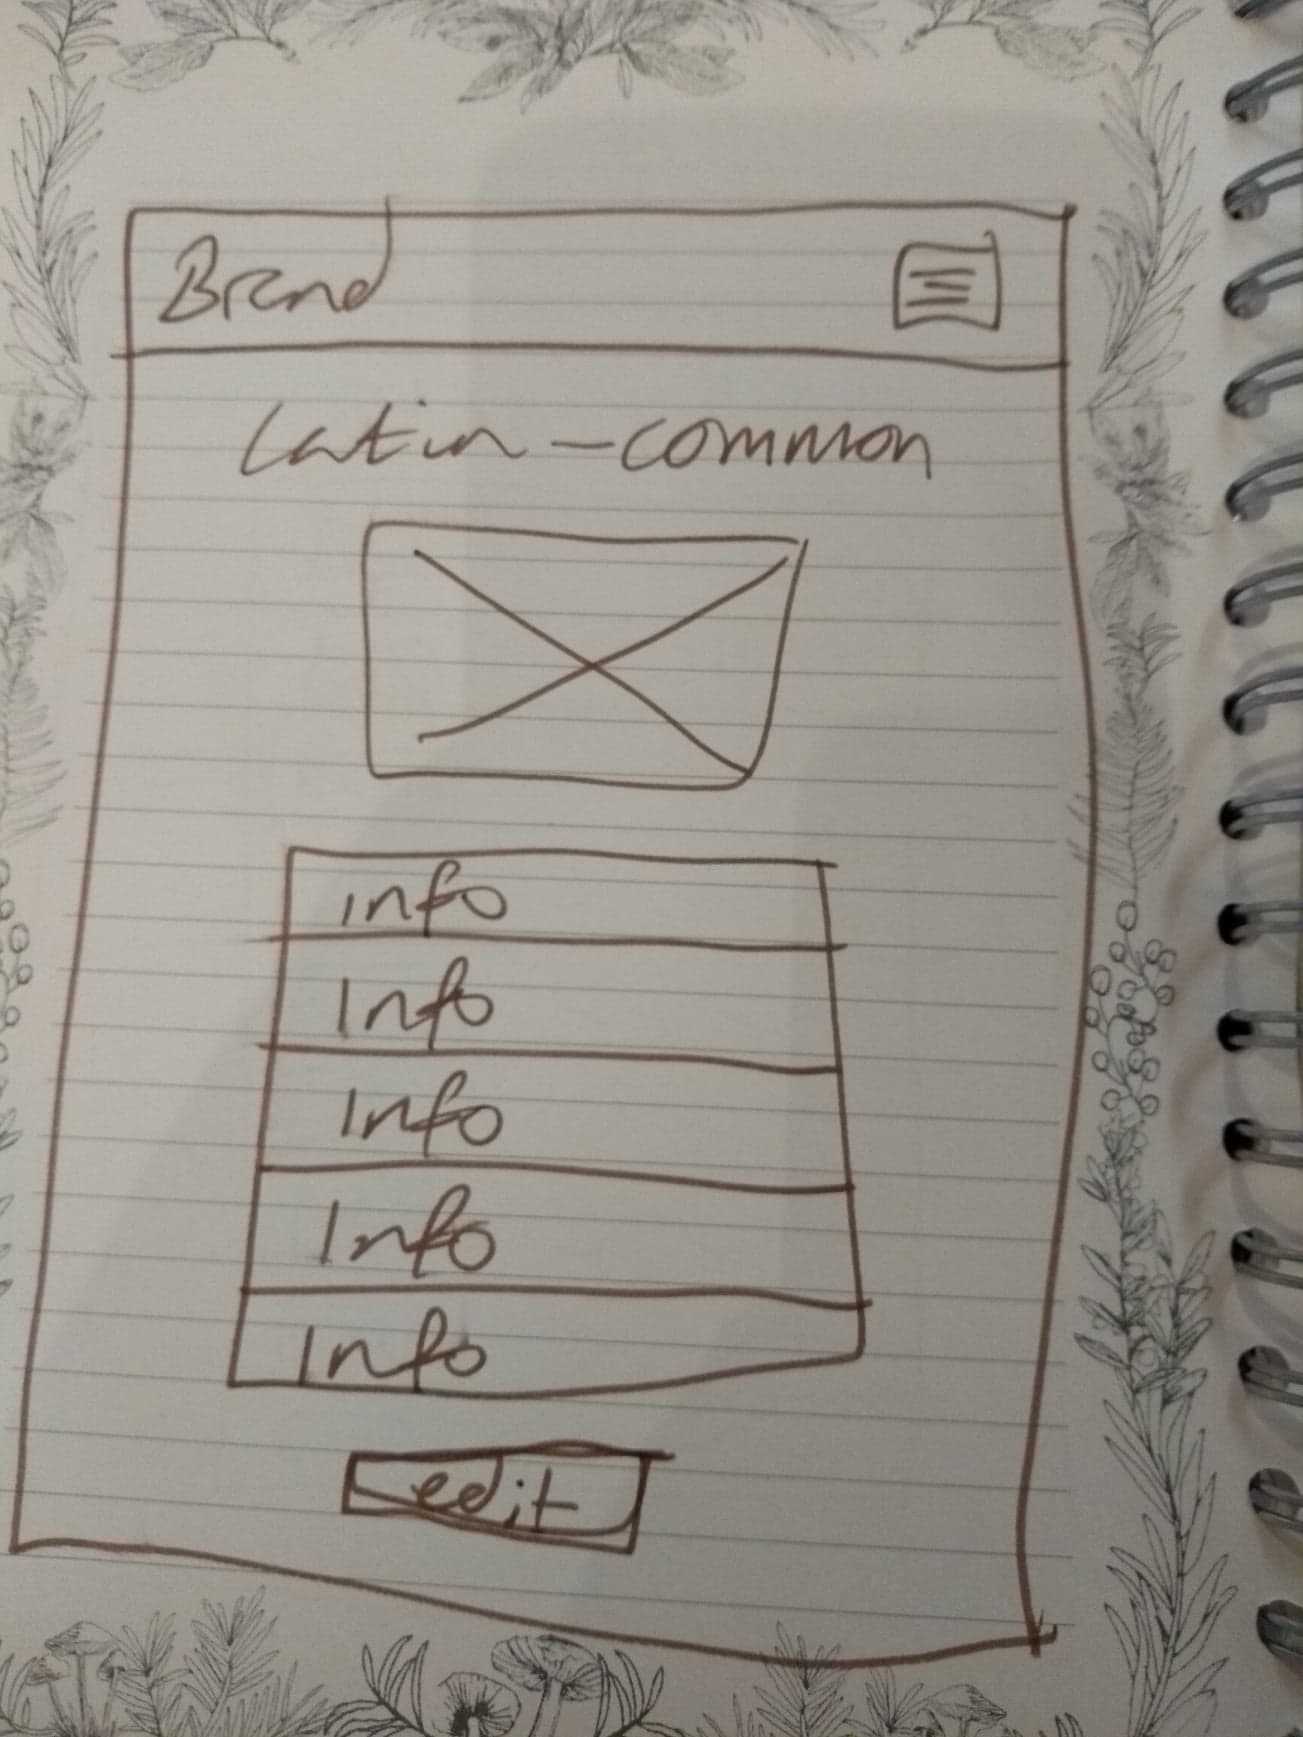 Brand
Latin - common
info
Info
Info
Info
Info
edit